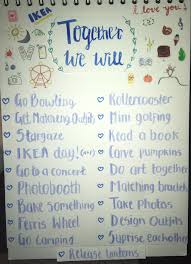 IKEA
I love you!
Together
We will
Go Bowling
Get Matching Outfits
Stargaze
IKEA day!
Go to a concert
Photobooth
Bake something
Ferris Wheel
Go Camping
Rollercoaster
Mini golfing
Read a book
Carve pumpkins
Do art together
Matching bracelets
Take Photos
Design Outfits
Suprise eachother
Release lanterns